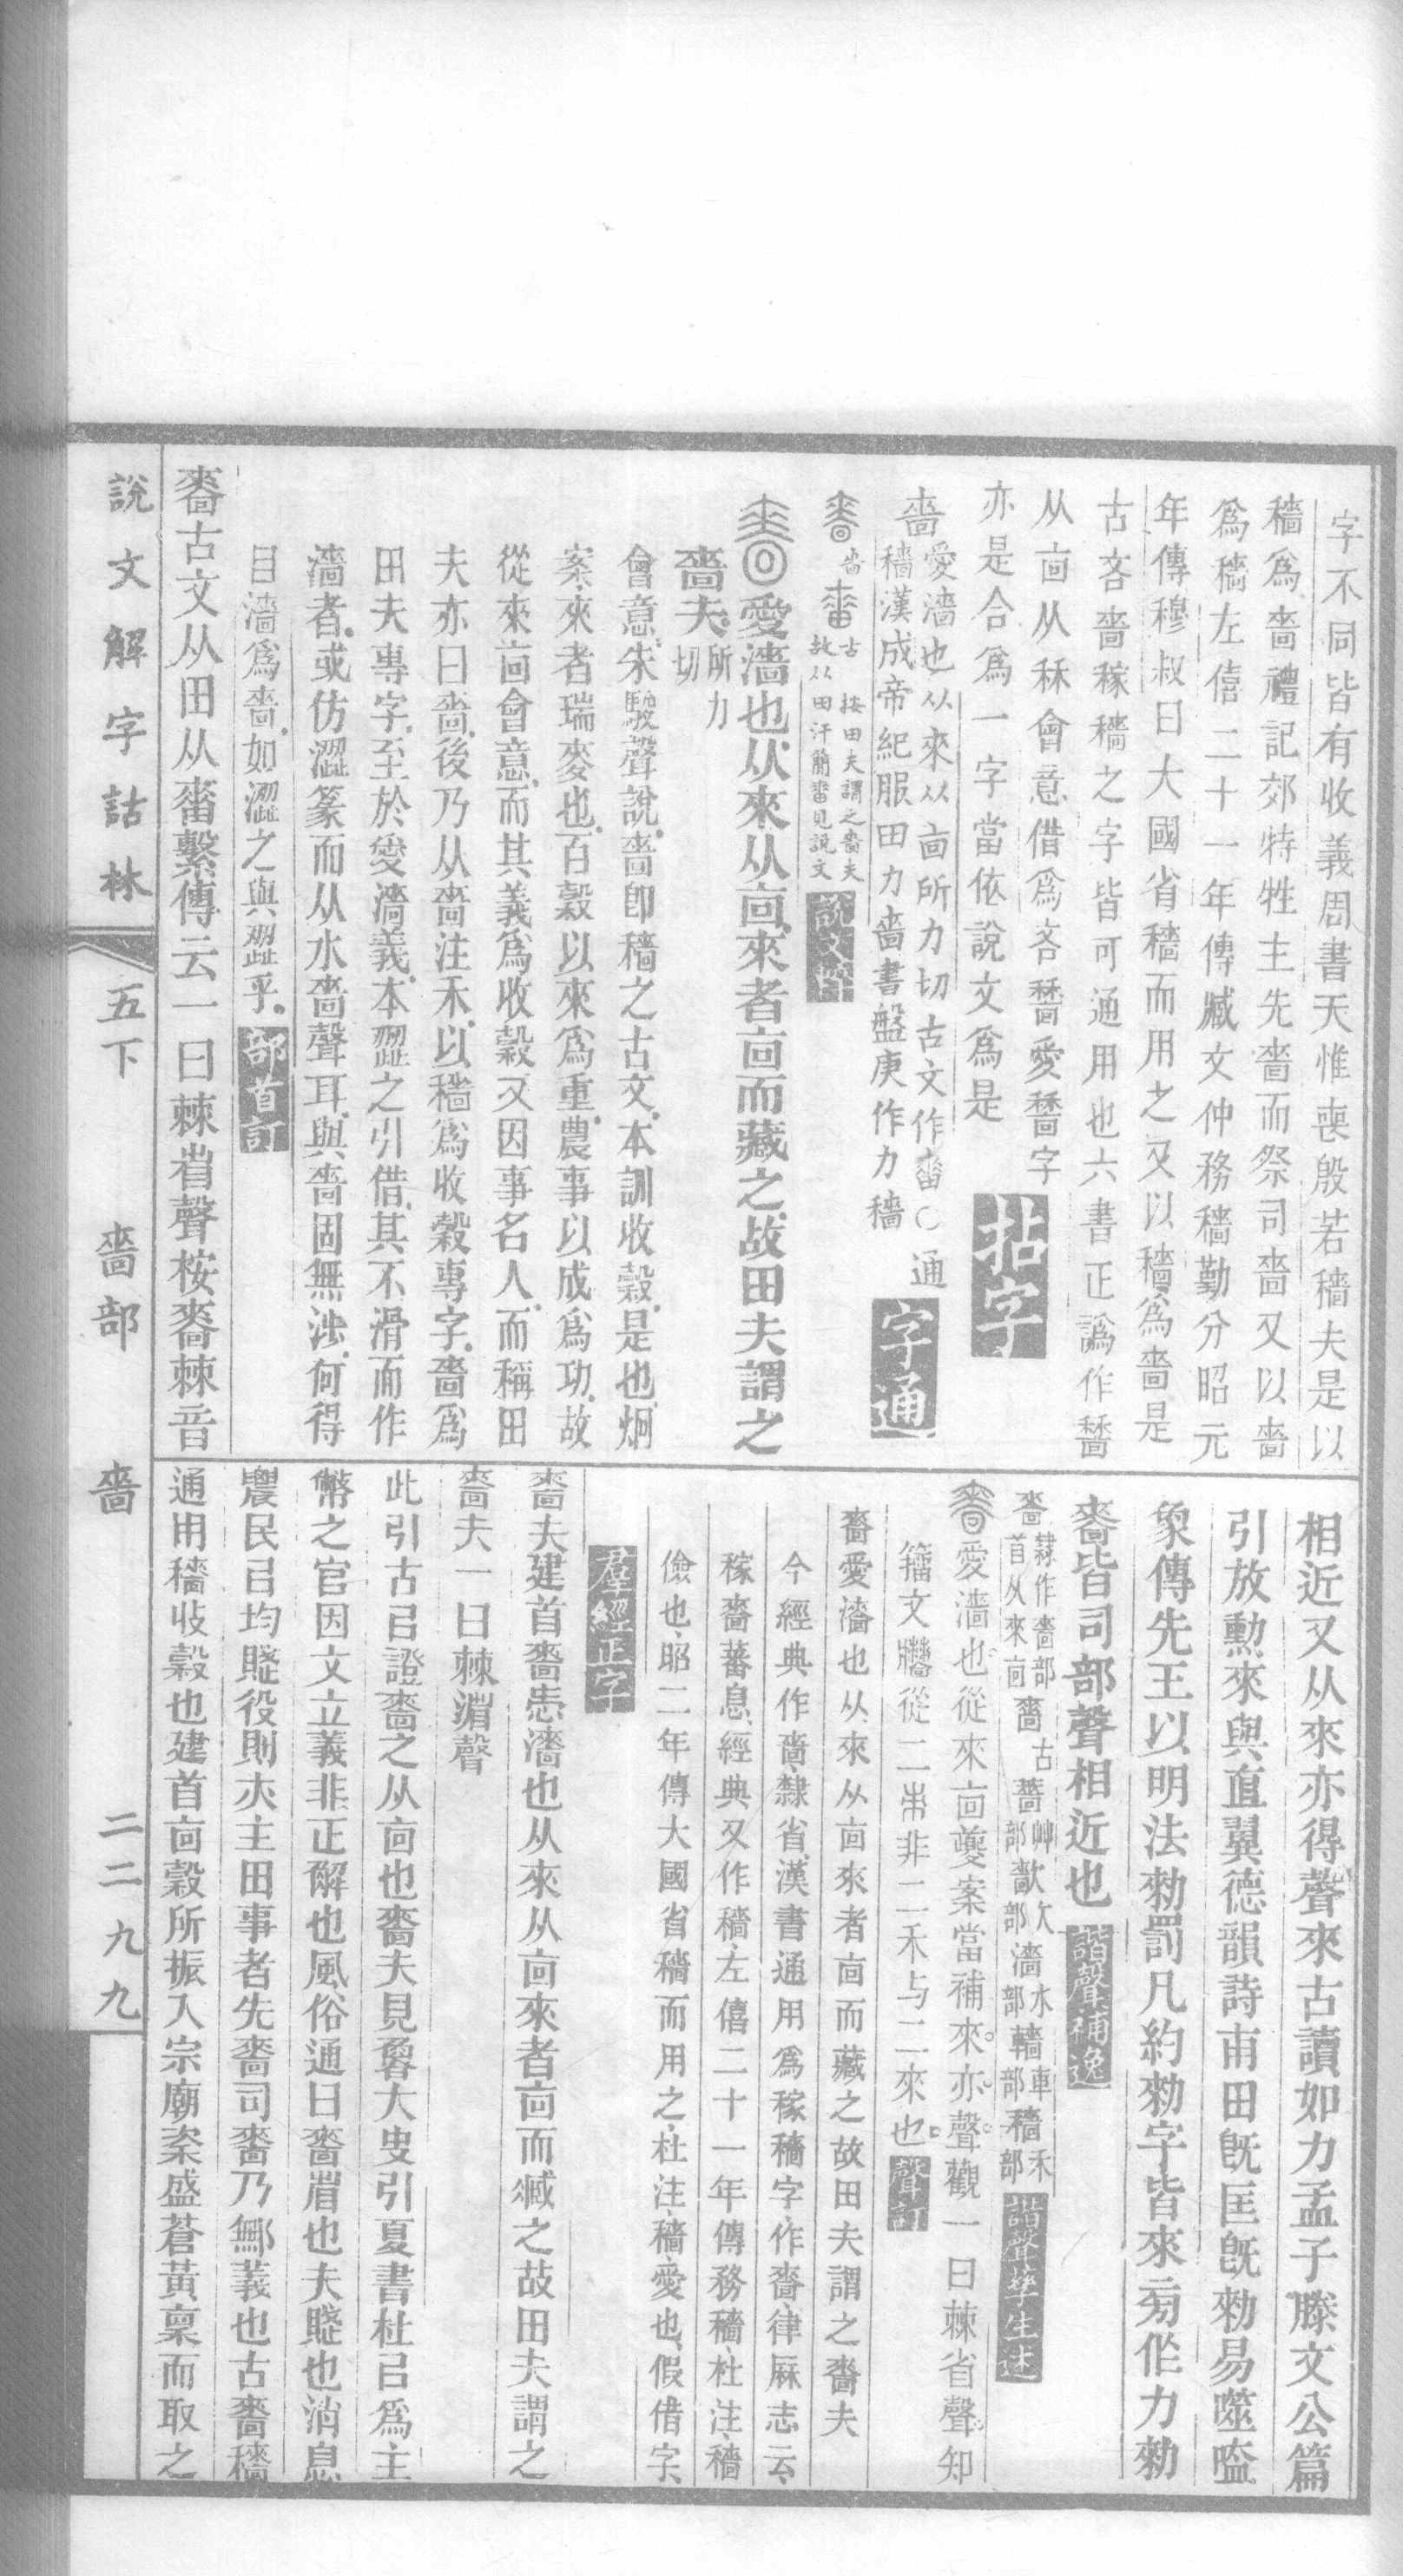 字不同皆有收義周書天惟喪殷若穡夫是以
穡爲嗇禮記郊特牲主先嗇而祭司嗇又以嗇
爲穡左僖二十一年傳臧文仲務穡勤分昭元
年傳穆叔曰大國省穡而用之又以穡爲嗇是
古吝嗇稼穡之字皆可通用也六書正譌作
从㐭从秝會意借爲吝愛字
亦是合爲一字當依說文爲是 拈字
嗇愛濇也从來从㐭所力切古文作𤲸〇通
穡漢成帝紀服田力嗇書盤庚作力穡 字通
嗇 古 按田夫謂之嗇夫
故从田汗簡𤲸見說文
愛濇也从來从㐭來者㐭而藏之故田夫謂之
嗇夫所力切
會意朱駿聲說嗇卽穡之古文本訓收穀是也炯
案來者瑞麥也百穀以來爲重農事以成爲功故
從來㐭會意而其義爲收穀又因事名人而稱田
夫亦曰嗇後乃从嗇注禾以穡爲收穀專字嗇爲
田夫專字至於愛濇義本歰之引借其不滑而作
濇者或仿澀篆而从水嗇聲耳與嗇固無涉何得
目濇爲嗇如澀之與歰乎 部首訂
嗇古文从田从𤲸繫傳云一曰棘省聲桉嗇棘音
相近又从來亦得聲來古讀如力孟子滕文公篇
引放勳來與直翼德韻詩甫田旣匡旣勑易噬嗑
象傳先王以明法勑罰凡約勑字皆來旁作力勑
嗇皆司部聲相近也 諧聲補逸
嗇隸作嗇部首从來㐭 嗇古 薔艸部 歗欠部 濇水部 轖車部 穡禾部 諧聲孳生述
愛濇也從來㐭夔案當補來亦聲觀一曰棘省聲知
籒文牆從二來非二禾与二來也 聲訂
嗇愛濇也从來从㐭來者㐭而藏之故田夫謂之嗇夫
今經典作嗇隸省漢書通用爲稼穡字作嗇律厤志云
稼嗇蕃息經典又作穡左僖二十一年傳務穡杜注穡
儉也昭二年傳大國省穡而用之杜注穡愛也假借字
羣經正字
嗇夫建首嗇㤅濇也从來从㐭來者㐭而臧之故田夫謂之
嗇夫一曰棘渻聲
此引古㠯證嗇之从㐭也嗇夫見魯大史引夏書杜㠯爲主
幣之官因文立義非正解也風俗通曰嗇渻也夫賤也消息
農民㠯均賤役則夾主田事者先嗇司嗇乃鄦義也古嗇穡
通用穡收穀也建首㐭穀所振入宗廟粢盛蒼黃稟而取之
說文解字詁林 五下 嗇部 嗇 二二九九